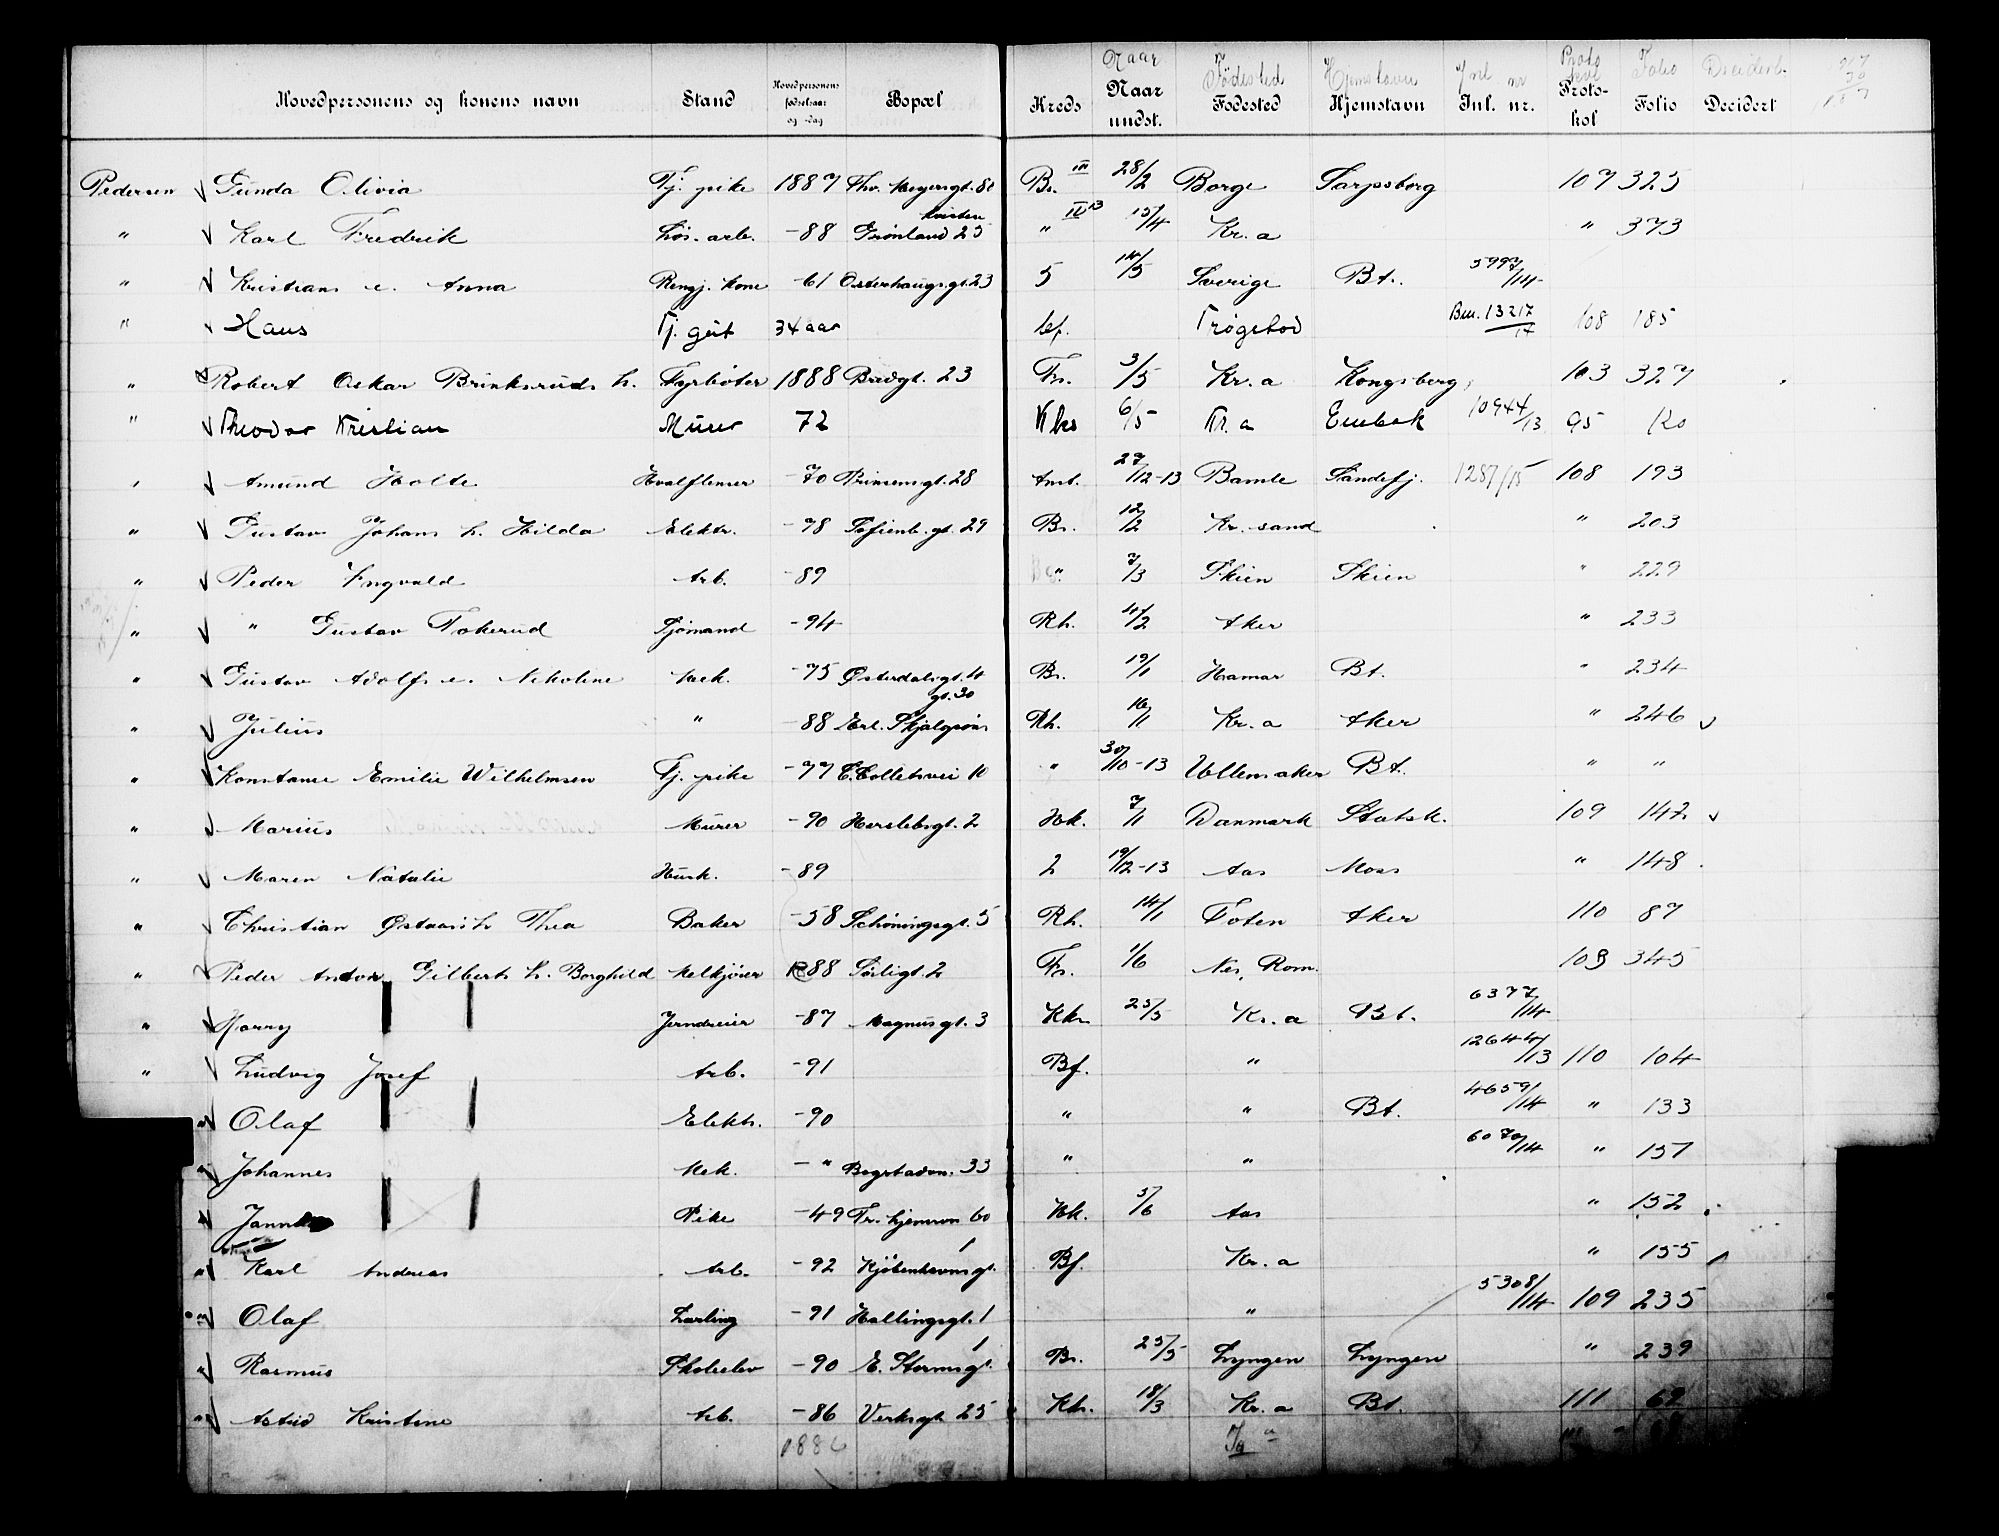 Hovedpersonens og konens navn | Stand | Hovedpersonens fødselsaar og -dag | Bopæl | Kreds | Naar undst. | Fødested | Hjemstavn | Inl. nr. | Protokol | Folio | Decidert
Naar Fødested Hjemstavn Inl. nr Protokol Folio Decidert.
Pedersen Gunda Olivia Tj. pike 1887 Thv. Meyersgt. Br. III 28/2 Borge Sarpsborg 107 325
" Karl Fredrik Løs. arb. -88 Grønland 25 " 15/4 Kr.a " 373
" Kristians e. Anna Rengj. kone -61 Osterhausgt. 23 5 14/5 Sverige Bt. 5997/14
" Hans Tj. gut 34 aar Trøgstad Bm. 13217/17 108 185
" Robert Oskar Brinksruds h. Fyrbøter 1888 Bredgt. 23 Fr. 3/5 Kr.a Kongsberg 103 327
" Theodor Kristian Murer 72 6/5 Kr.a Enebak 10944/13 95
" Amund Holte Hvalflenser -70 Prinsensgt. 28 Amt. 27/12-13 Bamle Sandefj. 1287/15 108 193
" Gustav Johans h. Hilda Elektr. -78 Sofienb.gt. 29 Br. 12/2 Kr.sand " 203
" Peder Ingvald Arb. -89 " 7/3 Skien Skien " 229
" " Gustav Tokerud Sjømand -94 Rh. 4/2 Aker " 233
" Gustav Adolfs e. Nikoline Mek. -75 Østerdalsgt. 4 Br. 19/1 Hamar Bt. " 234
" Julius " -88 Erl. Skjalgsøns gt. 30 Rh. 16/1 Kr.a Aker " 246
" Konstance Emilie Wilhelmsen Tj. pike -77 C. Colletsvei 10 " 30/10-13 Ullensaker Bt. " "
" Marius Murer -90 Herslebsgt. 2 Hk. 7/1 Danmark Statsk. 109 142
" Maren Natalie Hush. -89 2 19/12-13 Aas Moss " 148
" Christian Østaas h. Thea Baker -58 Schøningsgt. 5 Rh. 14/1 Toten Aker 110 87
" Peder Anton Gilberts h. Borghild Melkjører 1888 Sørligt. 2 Fr. 1/6 Nes, Rom. 103 345
" Harry Jerndreier -87 Magnusgt. 3 Kh. 25/5 Kr.a Bt. 6377/14
" Ludvig Josef Arb. -91 Bf. " 12644/13 110 104
" Olaf Elektr. -90 " " Bt. 4659/14 " 133
" Johannes Mek. - " Bogstadvn. 33 " " 6070/14 " 151
" Pike -49 60 Hk. 5/6 Aas " 152
" Karl Andreas Arb. -92 Kjøbenhavnsgt. 1 Bf. Kr.a " 155
" Olaf Lærling -91 Hallingsgt. 1 " 5308/14 109 235
" Rasmus Skoleelev -90 E. Stormsgt. 1 Br. 25/5 Lyngen Lyngen " 239
" Astrid Kristine Arb. -86 Verksgt. 25 Kh. 18/3 Kr.a Bt. 111 62
1886